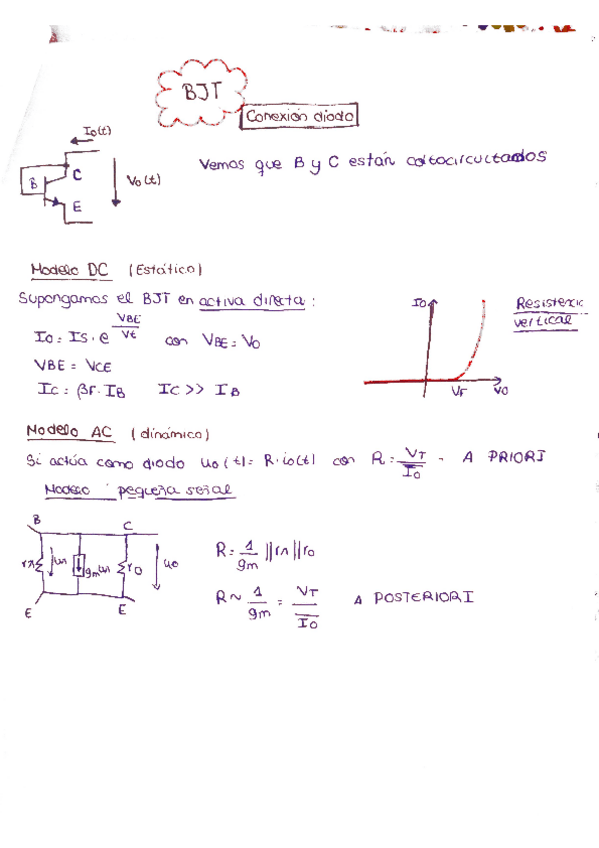 BJT
Conexión diodo
Io(t)
Vemos que B y C están coitocircuitados
B
C
E
Vo(t)
Modelo DC (Estático)
Supongamos el BJT en activa directa :
Io = Is · e^(VBE/Vt) con VBE = Vo
VBE = VCE
Ic = βF · IB Ic >> IB
Io
VF
VO
Resistencic
vertical
Modelo AC (dinámico)
Si actúa como diodo uo(t) = R · io(t) con R = VT/Io - A PRIORI
Modelo pequeña señal
B
C
rπ
uπ
gm uπ
ro
uo
E
E
R = 1/gm || rπ || ro
R ~ 1/gm = VT/Io A POSTERIORI